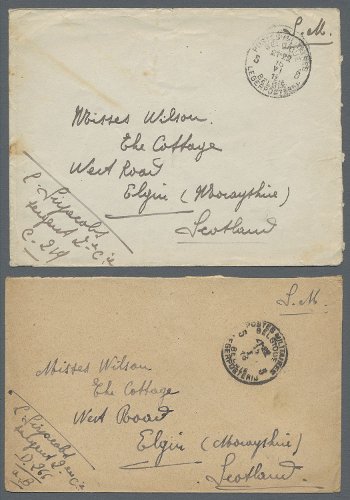 S.M.
POSTES MILITAIRES
BELGIQUE
LEGERPOSTERIJ
Misses Wilson.
The Cottage
West Road
Elgin (Morayshire)
Scotland
sergent 2e Cie
C-219
S.M.
POSTES MILITAIRES
BELGIQUE
LEGERPOSTERIJ
Misses Wilson
The Cottage
West Road
Elgin (Morayshire)
Scotland.
sergent 2e Cie
D.266